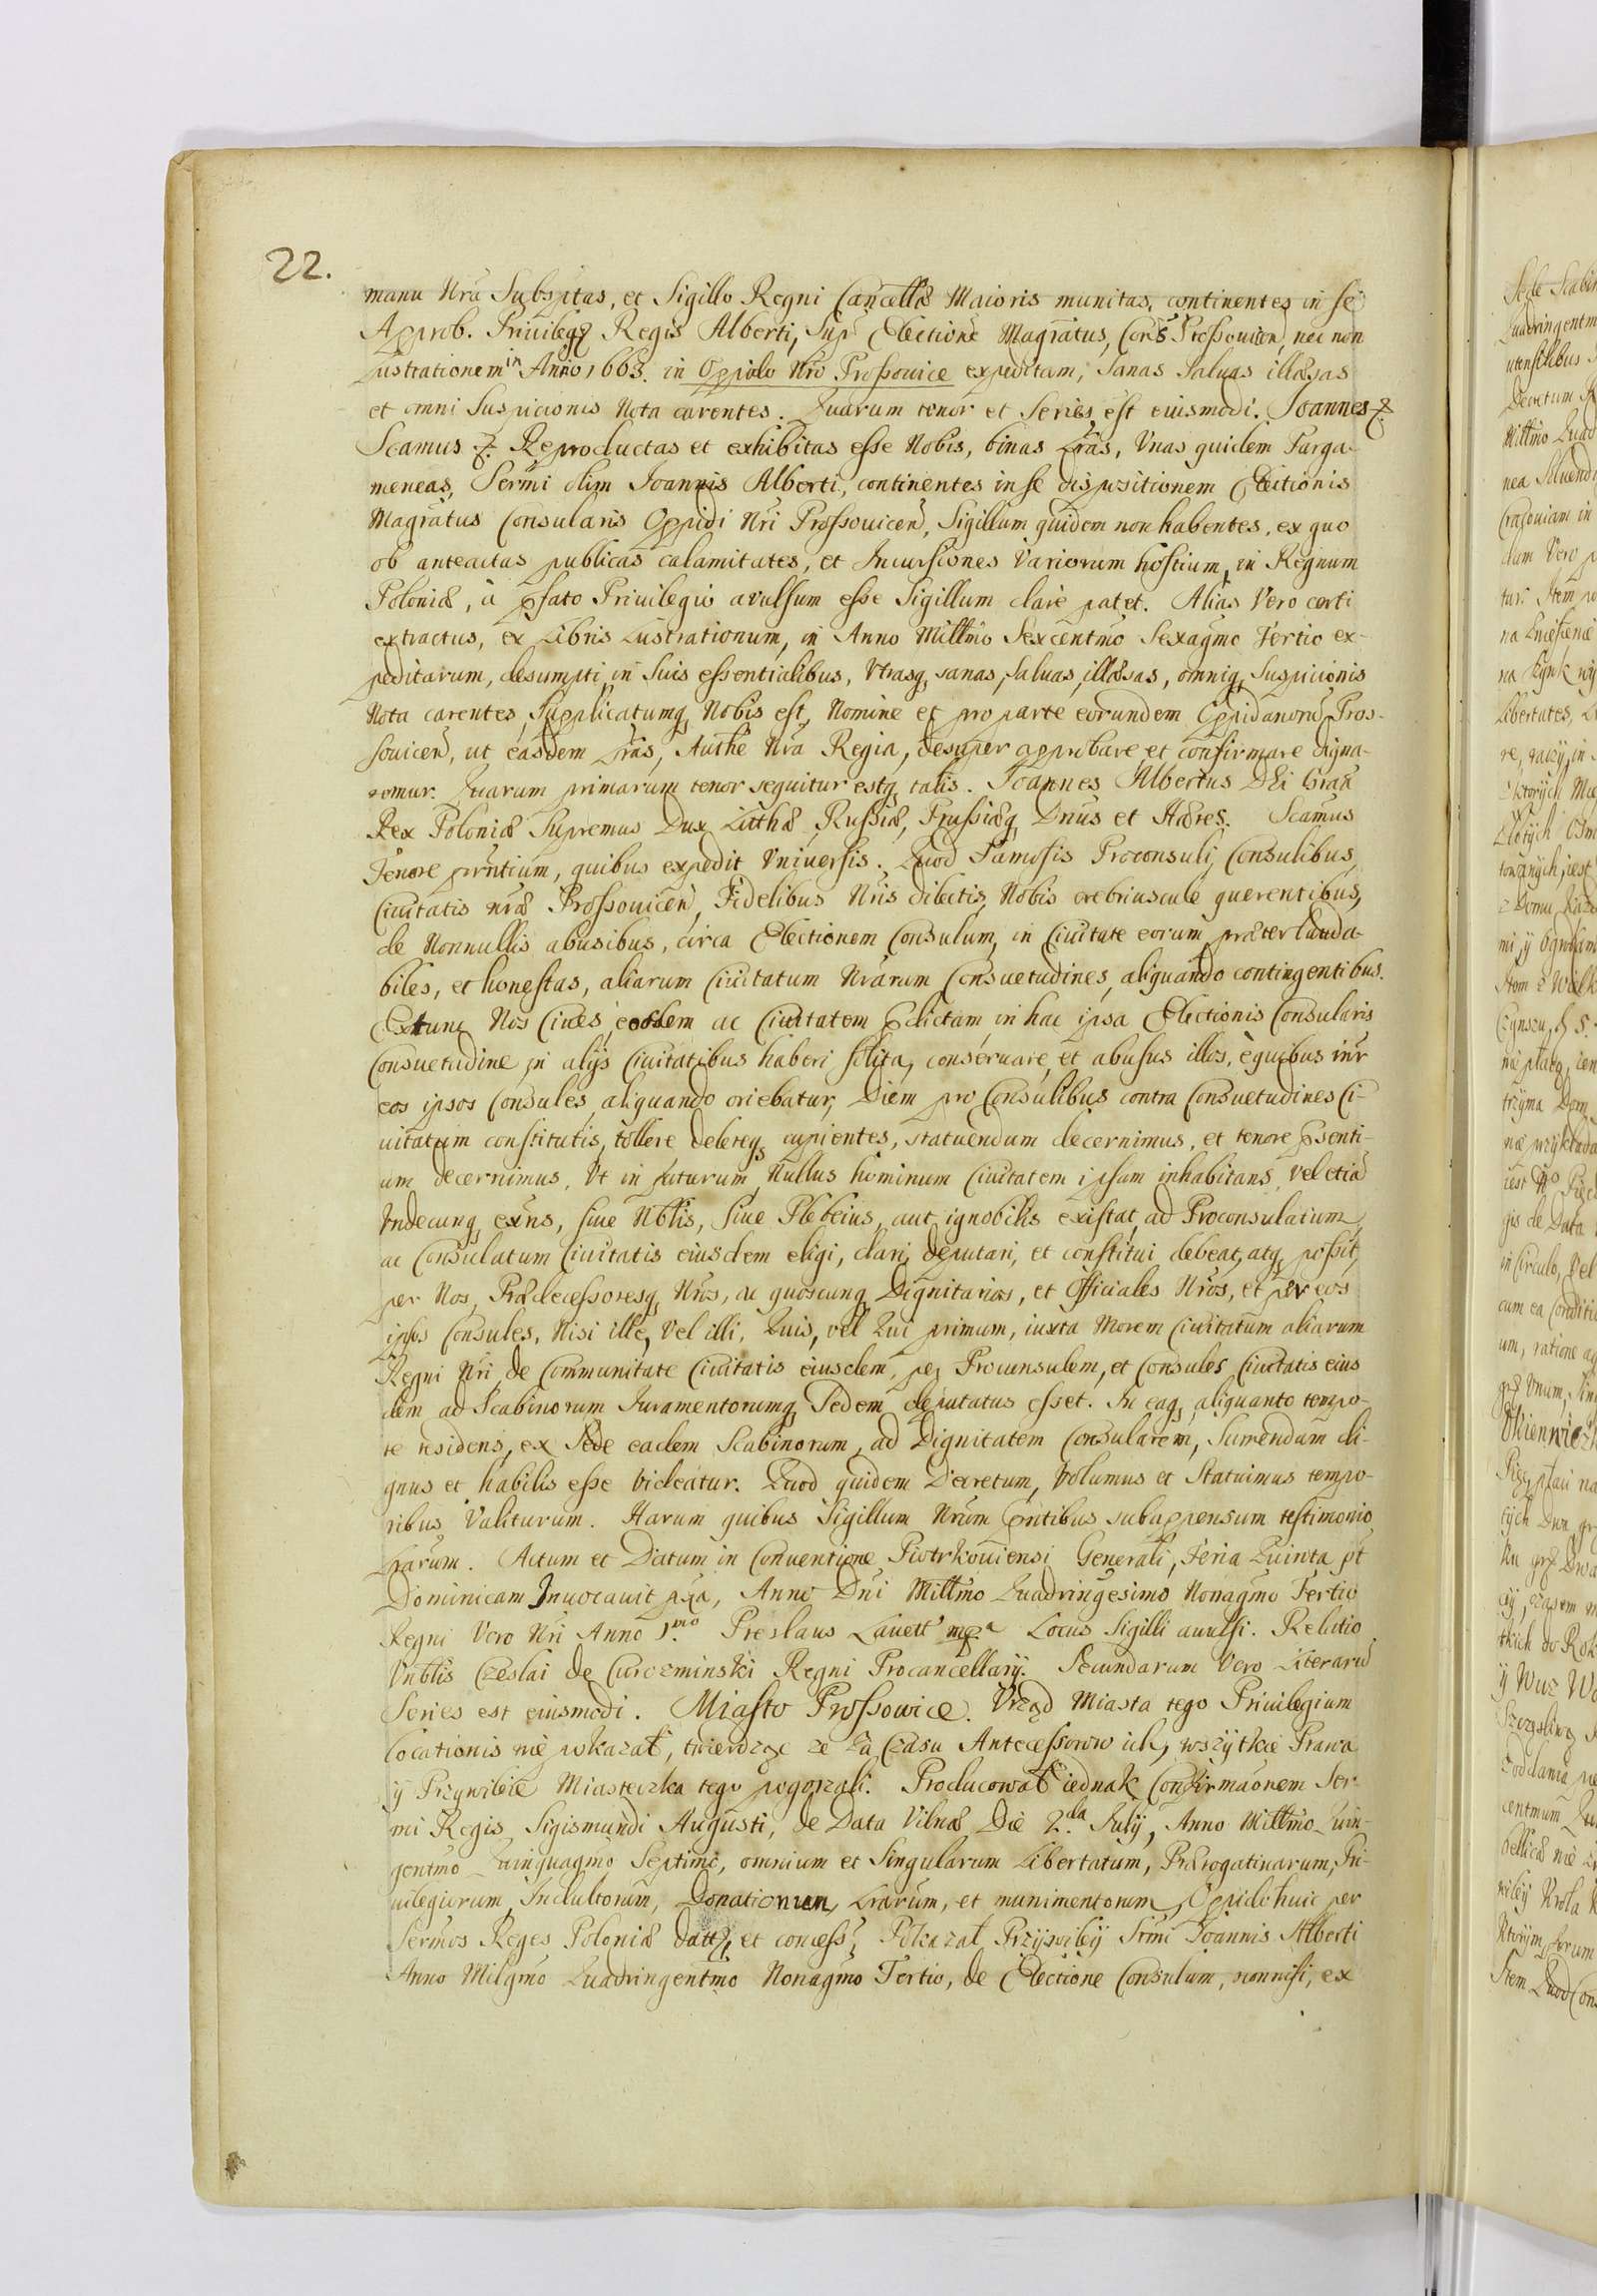 22.
manu Nrã Subsptas, et Sigillo Regni Cancellæ Maioris munitas, continentes in se
Approb. Priuileg Regis Alberti, Sup Electione Magratus, Cons Prossouicen, nec non
Lustrationem in Anno 1663. in Oppido Nro Prossouice expeditam, Sanas Saluas illæsas
et omni Suspicionis Nota carentes. Quarum tenor et Series est eiusmodi. Joannes &.
Scamus &. Reproductas et exhibitas esse Nobis, binas Lras, Vnas quidem Parga-
meneas, Sermi olim Joannis Alberti, continentes in se dispositionem Electionis
Magratus Consularis Oppidi Nri Prossouicen, Sigillum quidem non habentes, ex quo
ob anteactas publicas calamitates, et Incursiones Variorum hostium, in Regnum
Poloniæ, à psato Priuilegio avulsum esse Sigillum clarè patet. Alias Vero certi
extractus, ex Libris Lustrationum, in Anno Millmo Sexcentmo Sexagmo Tertio ex-
peditarum, desumpti, in Suis essentialibus, Vtrasq, sanas, Saluas, illæsas, omniq, Suspicionis
Nota carentes, Supplicatumq, Nobis est, Nomine et pro parte eorundem Oppidanoru Pros-
souicen, ut easdem Lras, Authe Nra Regia, desuper approbare, et confirmare digna-
remur. Quarum primarum tenor sequitur estq, talis. Joannes Albertus DEi Graa
Rex Poloniæ Supremus Dux Lithæ Russiæ, Prussiæq, Dnus et Hæres. Scamus
Tenore prntium, quibus expedit Vniuersis. Quod Famosis Proconsuli, Consulibus,
Ciuitatis nræ Prossouicen, Fidelibus Nris dilectis, Nobis crebriuscule querentibus,
de Nonnullis abusibus, circa Electionem Consulum, in Ciuitate eorum præter lauda-
biles, et honestas, aliarum Ciuitatum Nrarum Consuetudines, aliquando contingentibus.
Extunc Nos Ciues, eosdem ac Ciuitatem pdictam, in hac ipsa Electionis Consularis
Consuetudine, in alijs Ciuitatibus haberi solita, conseruare, et abusus illos, è quibus intr
eos ipsos Consules, aliquando oriebatur, Diem pro Consulibus contra Consuetudines Ci-
uitatum constitutis, tollere delereq, cupientes, statuendum decernimus, et tenore psenti-
um decernimus, Vt in futurum, Nullus hominum Ciuitatem ipsam inhabitans, vel etia
Vndecunq, exns, siue Nblis, siue Plebeius, aut ignobilis existat, ad Proconsulatum,
ac Consulatum Ciuitatis eiusdem eligi, dari, deputari, et constitui debeat, atq, possit,
per Nos, Prædecessoresq, Nros, ac quoscunq, Dignitarios, et Officiales Nros, et per eos
ipsos Consules, Nisi ille, Vel illi, Quis, vel Qui primum, iuxta Morem Ciuitatum aliarum
Regni Nri, de Communitate Ciuitatis eiusdem, per Proconsulem, et Consules Ciuitatis eius
dem ad Scabinorum Iuramentorumq, Sedem deputatus esset. In eaq, aliquanto tempo-
re residens, ex Sede eadem Scabinorum, ad Dignitatem Consularem, Sumendam di-
gnus et habilis esse videatur. Quod quidem Decretum, Volumus et Statuimus tempo-
ribus Valiturum. Harum quibus Sigillum Nrum prntibus subappensum testimonio
Lrarum. Actum et Datum in Conuentione Piotrkouiensi Generali, Feria Quinta pt
Dominicam Inuocauit pxa, Anno Dni Millmo Quadringesimo Nonagmo Tertio
Regni Vero Nri Anno 1.mo Preslaus Lauett' mpa Locus Sigilli auulsi. Relatio
Vnblis Czeslai de Curozminski Regni Procancellarij. Secundarum Vero Literaru
Series est eiusmodi. Miasto Prossowice. Vrząd Miasta tego Priuilegium
Locationis niè pokazał, twierdząc ze Za Czasu Antecessorow ich, wszytkie Prawa
ÿ Przywileie Miasteczka tego pogorzali. Producował iednak Confirmaonem Ser-
mi Regis Sigismundi Augusti, de Data Vilnæ Die 2.da Julij, Anno Millmo Quin-
gentmo Quinquagmo Septimo, omnium et Singularum Libertatum, Prærogatiuarum, Pri-
uilegiorum, Indultorum, Donationum, Lrarum, et munimentorum, Oppido huic per
Sermos Reges Poloniæ datt, et concess, Pokazał Przywiley Srmi Joannis Alberti
Anno Milgmo Quadringentmo Nonagmo Tertio, de Electione Consulum, nonnisi, ex